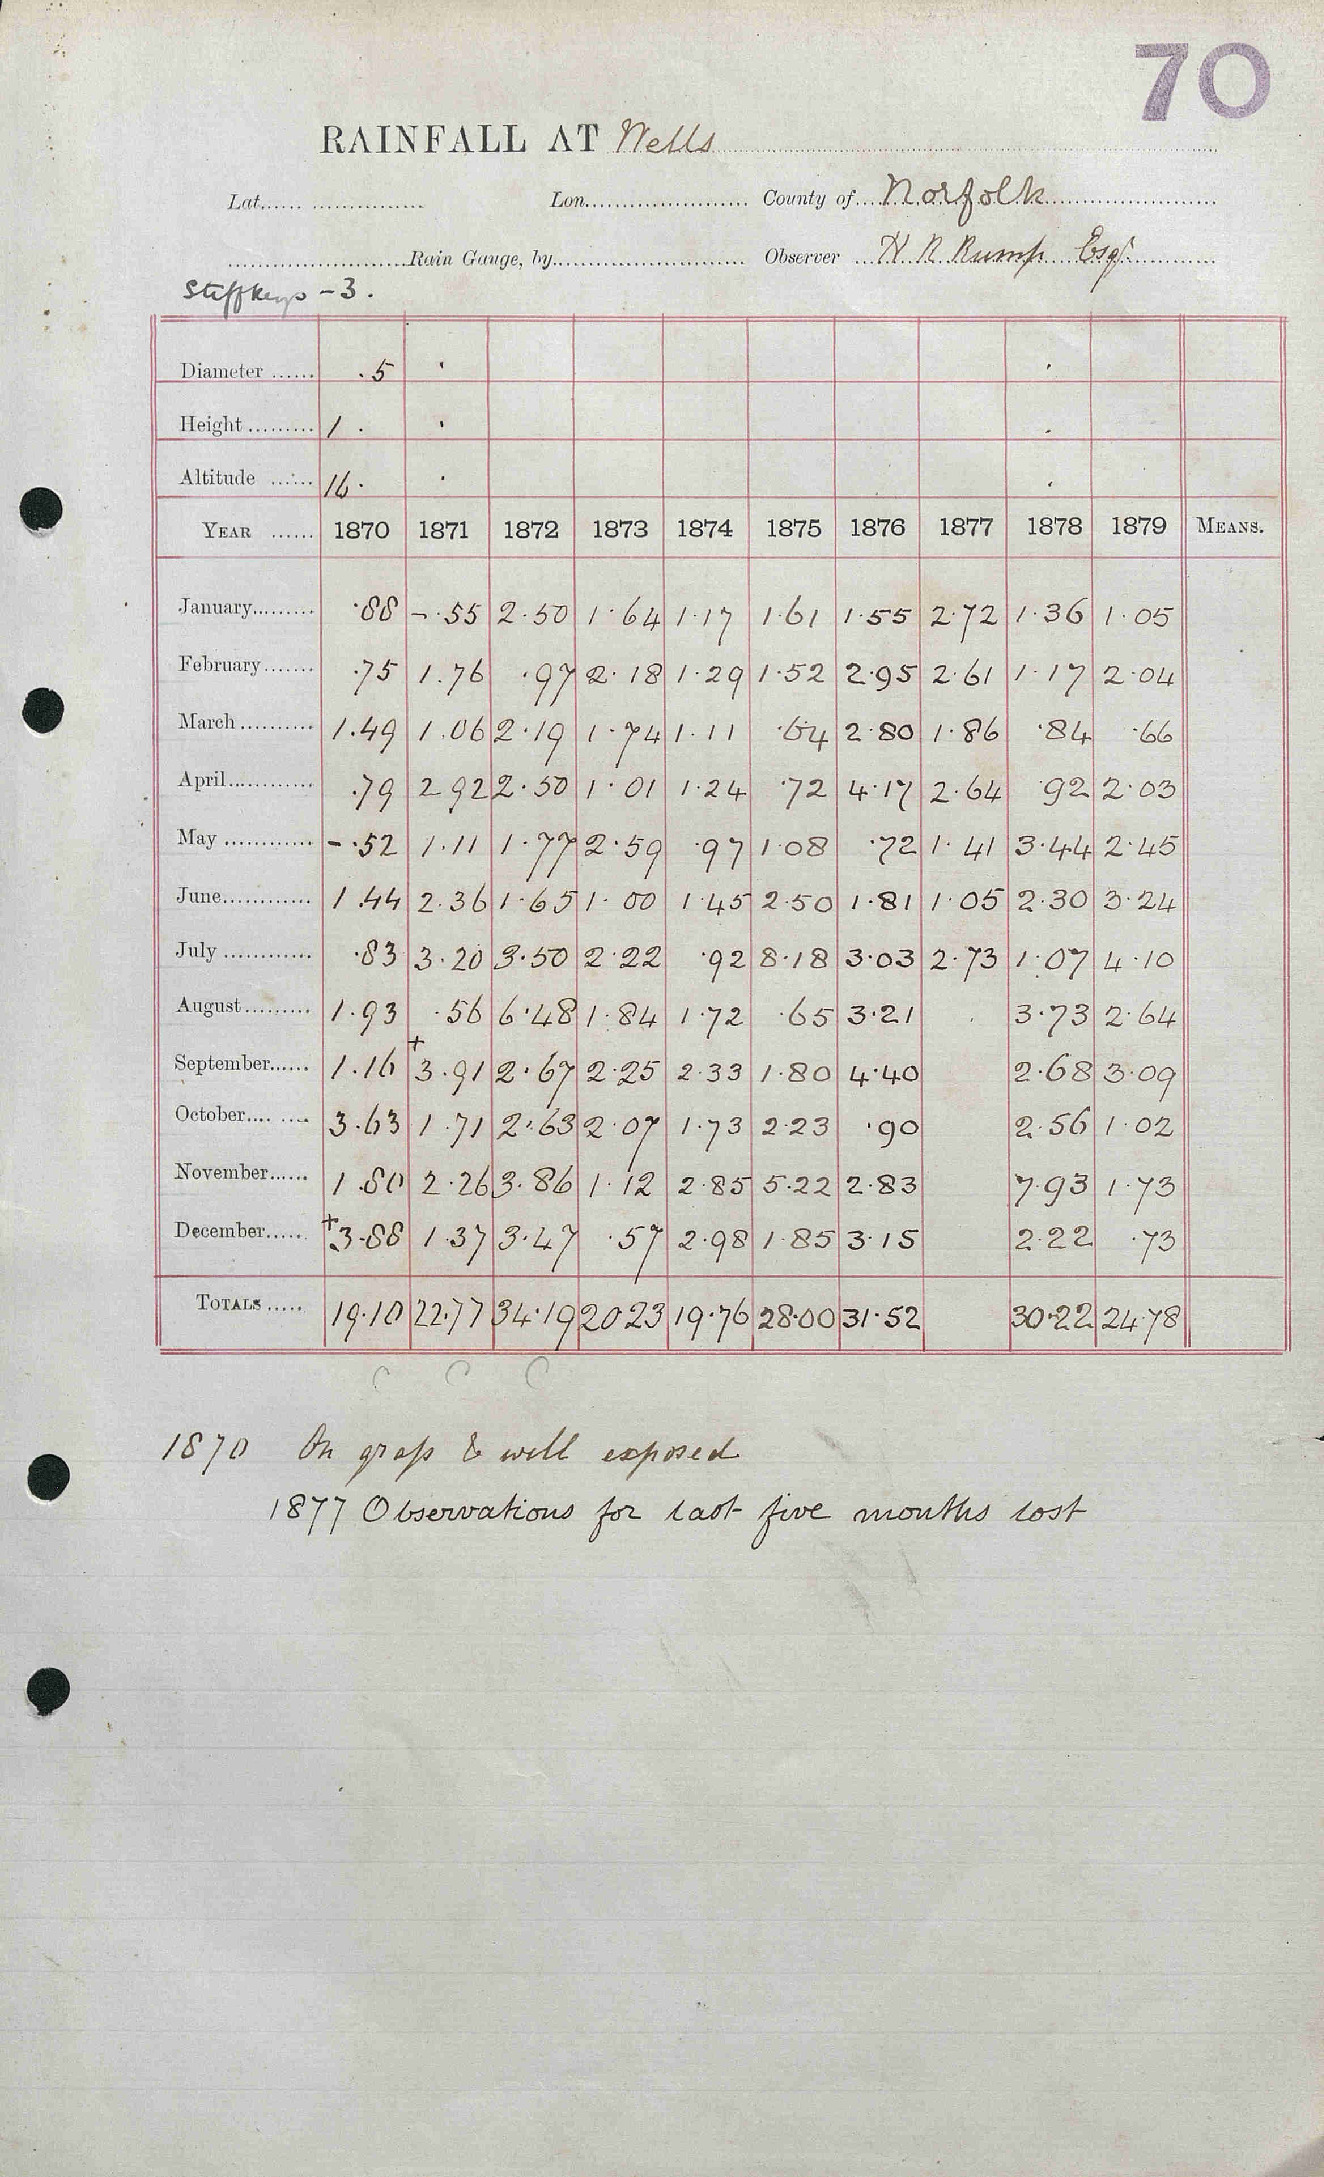 70
RAINFALL AT Wells
Lat. Lon. County of Norfolk
Rain Gauge, by Observer H R Rump Esqr
Stiffkey - 3.
Diameter ...... .5
Height ......... 1 .
Altitude ...... 16.
YEAR ...... 1870 1871 1872 1873 1874 1875 1876 1877 1878 1879 MEANS.
January ......... ·88 - .55 2.50 1·64 1·17 1·61 1·55 2·72 1·36 1·05
February ....... .75 1.76 ·97 2·18 1·29 1·52 2·95 2·61 1·17 2·04
March .......... 1.49 1.06 2·19 1·74 1·11 ·64 2·80 1·86 ·84 ·66
April ............ .79 2 92 2·50 1·01 1·24 ·72 4·17 2·64 92 2·03
May ............ - .52 1.11 1·77 2·59 ·97 1·08 ·72 1·41 3·44 2·45
June ............ 1.44 2.36 1·65 1·00 1·45 2·50 1·81 1·05 2·30 3·24
July ............ ·83 3.20 3·50 2·22 ·92 8·18 3·03 2·73 1·07 4·10
August ......... 1.93 .56 6·48 1·84 1·72 ·65 3·21 3·73 2·64
September ...... 1.16 +3.91 2·67 2·25 2·33 1·80 4·40 2·68 3·09
October ........ 3.63 1.71 2·63 2·07 1·73 2·23 ·90 2·56 1·02
November ...... 1.80 2.26 3·86 1·12 2·85 5·22 2·83 7·93 1·73
December ...... +3.88 1.37 3·47 ·57 2·98 1·85 3·15 2·22 ·73
TOTALS ..... 19.10 22.77 34·19 20 23 19·76 28·00 31·52 30·22 24·78
1870 On grass & well exposed
1877 Observations for last five months lost